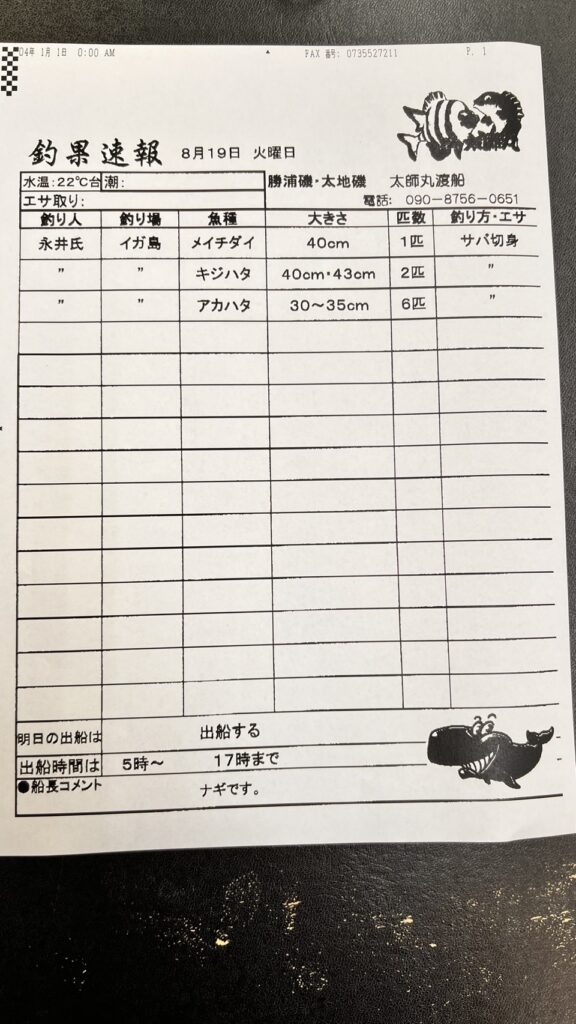 04年 1月 1日 0:00 AM FAX 番号: 0735527211 P. 1
釣果速報 8月19日 火曜日
水温:22℃台 潮: 勝浦磯・太地磯 太師丸渡船
エサ取り: 電話: 090-8756-0651
釣り人 釣り場 魚種 大きさ 匹数 釣り方・エサ
永井氏 イガ島 メイチダイ 40cm 1匹 サバ切身
〃 〃 キジハタ 40cm・43cm 2匹 〃
〃 〃 アカハタ 30~35cm 6匹 〃
明日の出船は 出船する
出船時間は 5時~ 17時まで
●船長コメント ナギです。